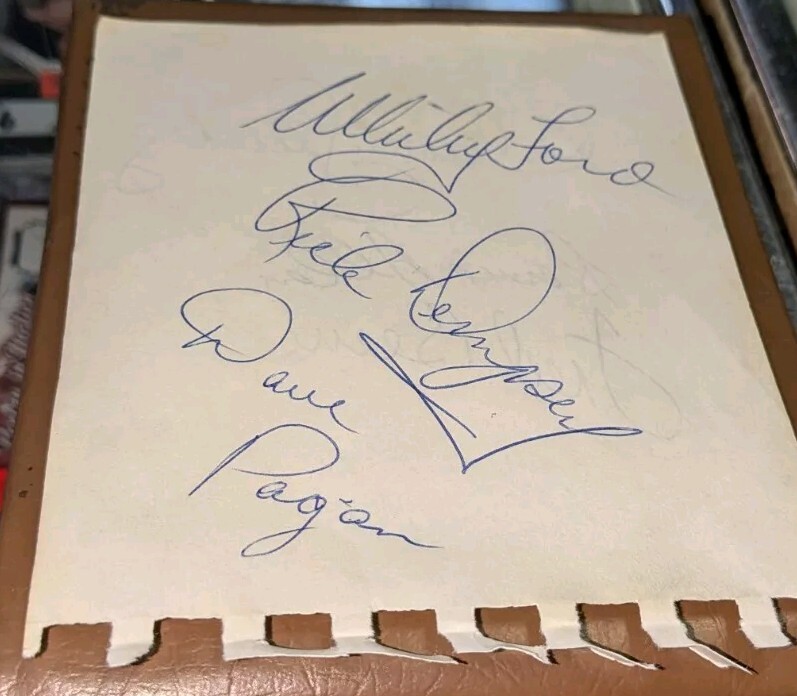 Whitey Ford
Rick Dempsey
Dave
Pagan